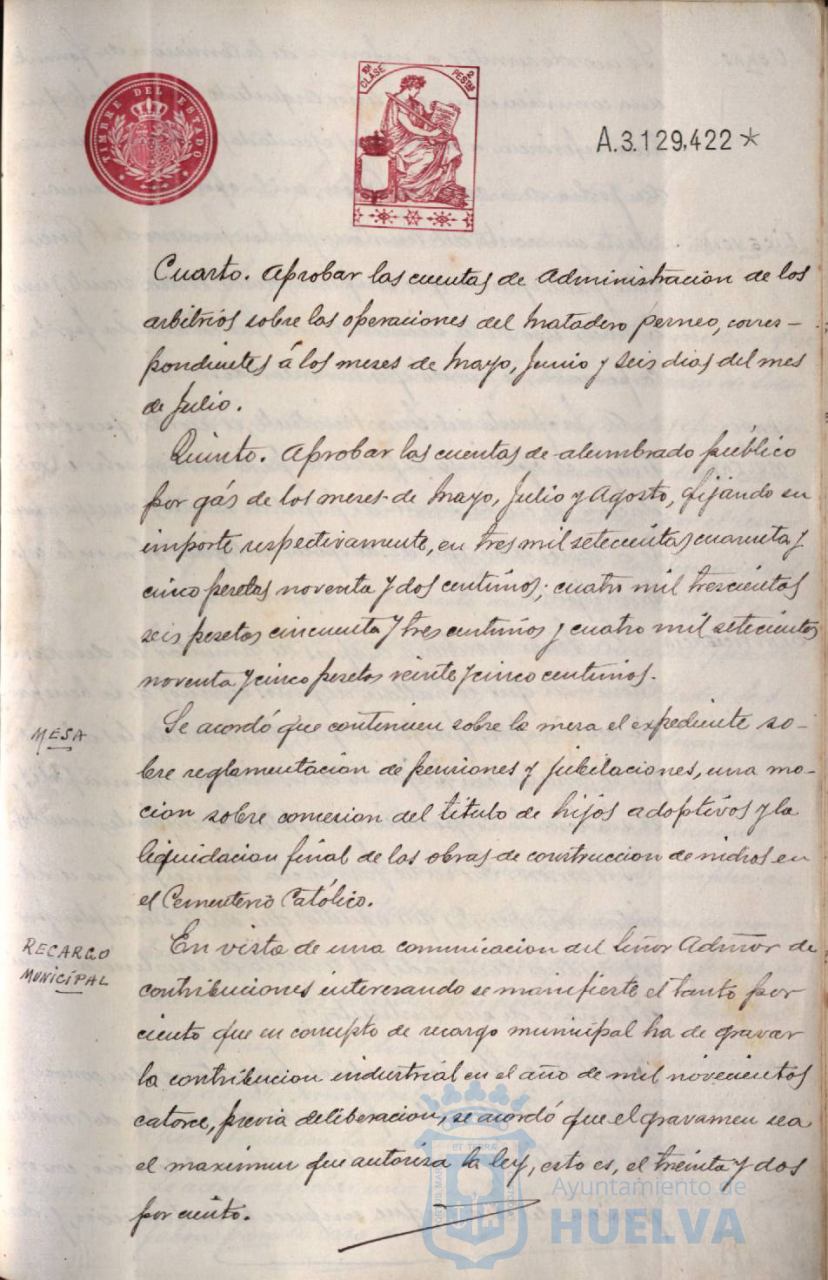 TIMBRE DEL ESTADO
CLASE
2 PESTAS
A.3.129,422*
Cuarto. Aprobar las cuentas de Administracion de los
arbitrios sobre las operaciones del Matadero perneo, corres-
pondientes á los meses de Mayo, Junio y seis dias del mes
de Julio.
Quinto. Aprobar las cuentas de alumbrado público
por gás de los meses de Mayo, Julio y Agosto, fijando su
importe respectivamente, en tres mil setecientas cuarenta y
cinco pesetas noventa y dos centimos; cuatro mil trescientas
seis pesetas cincuenta y tres centimos y cuatro mil setecientas
noventa y cinco pesetas veinte y cinco centimos.
MESA
Se acordó que continuen sobre la mesa el expediente so-
bre reglamentacion de pensiones y jubilaciones, una mo-
cion sobre concesion del titulo de hijos adoptivos y la
liquidacion final de las obras de construccion de nichos en
el Cementerio Católico.
RECARGO
MUNICIPAL
En vista de una comunicacion del Señor Admŏr de
contribuciones interesando se manifieste el tanto por
ciento que en concepto de recargo municipal ha de gravar
la contribucion industrial en el año de mil novecientos
catorce, previa deliberacion, se acordó que el gravamen sea
el maximun que autoriza la ley, esto es, el treinta y dos
por ciento.
Ayuntamiento de
HUELVA